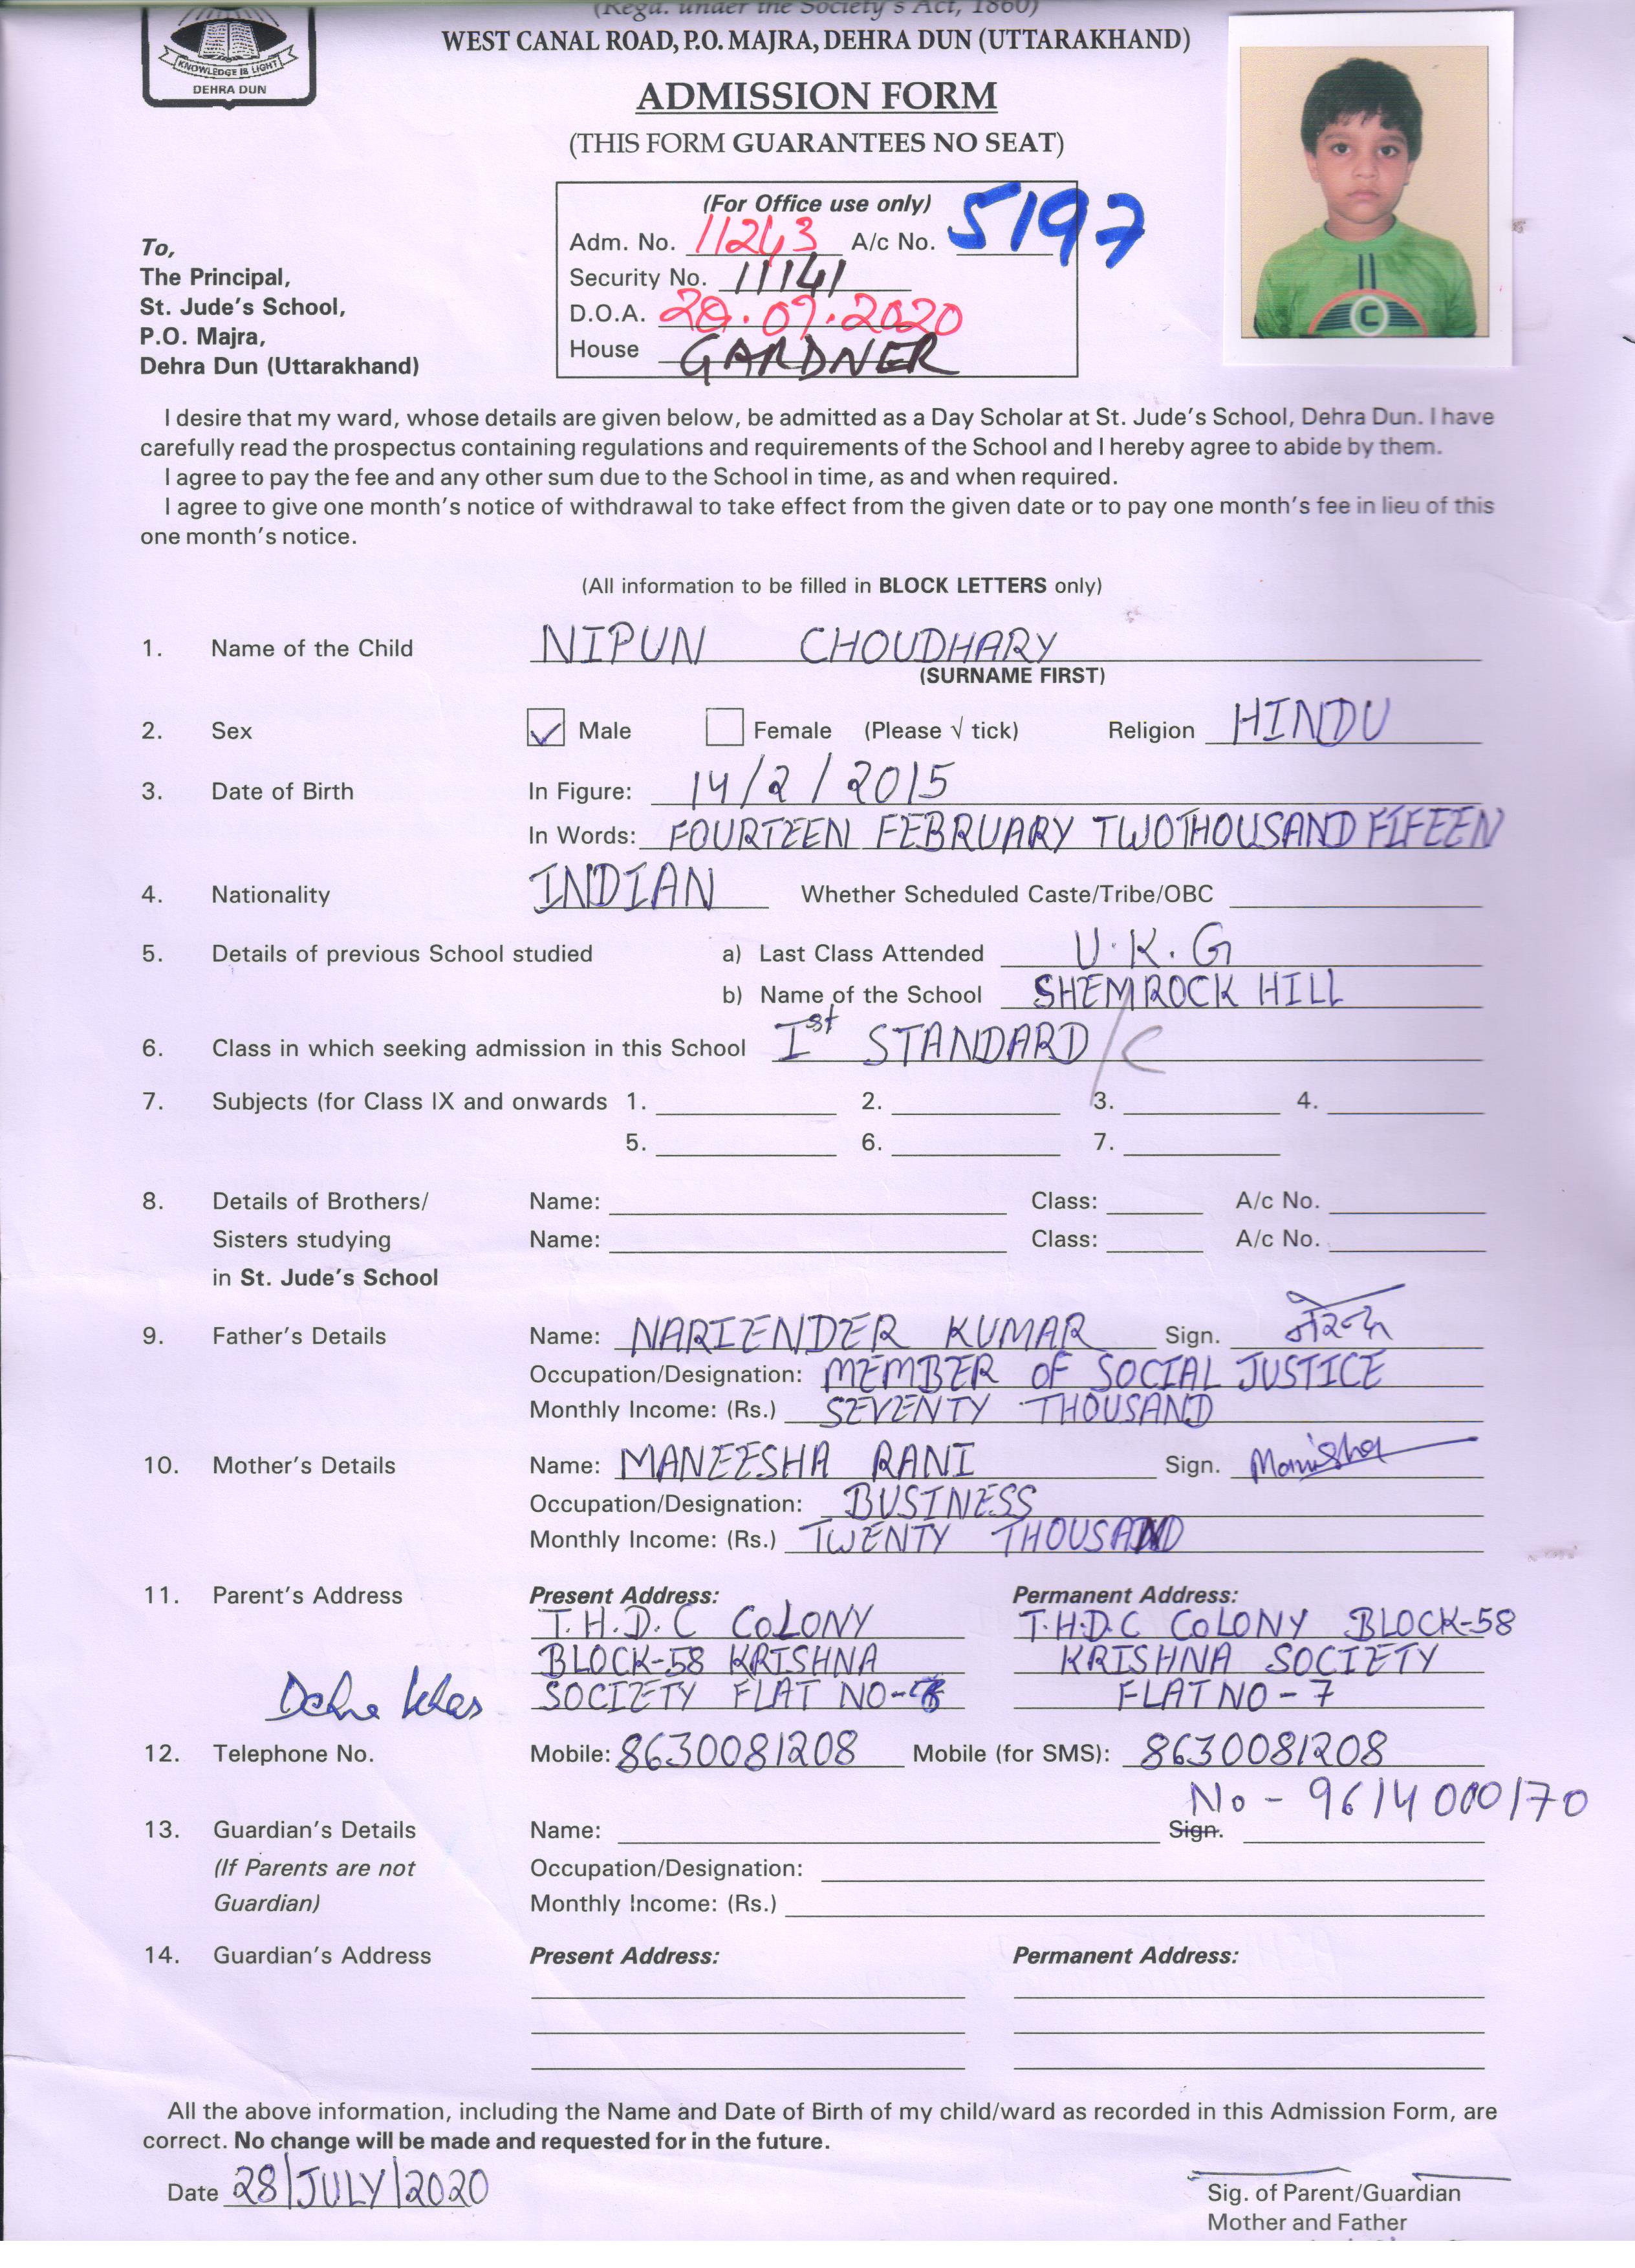 (Regd. under the Society's Act, 1860)
WEST CANAL ROAD, P.O. MAJRA, DEHRA DUN (UTTARAKHAND)
KNOWLEDGE IS LIGHT
DEHRA DUN
ADMISSION FORM
(THIS FORM GUARANTEES NO SEAT)
(For Office use only)
Adm. No. 11243 A/c No. 5197
Security No. 11141
D.O.A. 28.07.2020
House GARDNER
To,
The Principal,
St. Jude's School,
P.O. Majra,
Dehra Dun (Uttarakhand)
C
I desire that my ward, whose details are given below, be admitted as a Day Scholar at St. Jude's School, Dehra Dun. I have
carefully read the prospectus containing regulations and requirements of the School and I hereby agree to abide by them.
I agree to pay the fee and any other sum due to the School in time, as and when required.
I agree to give one month's notice of withdrawal to take effect from the given date or to pay one month's fee in lieu of this
one month's notice.
(All information to be filled in BLOCK LETTERS only)
1. Name of the Child NIPUN CHOUDHARY
(SURNAME FIRST)
2. Sex Male Female (Please √ tick) Religion HINDU
3. Date of Birth In Figure: 14/2/2015
In Words: FOURTEEN FEBRUARY TWOTHOUSAND FIFEEN
4. Nationality INDIAN Whether Scheduled Caste/Tribe/OBC
5. Details of previous School studied a) Last Class Attended U.K.G
b) Name of the School SHEMROCK HILL
6. Class in which seeking admission in this School Ist STANDARD/C
7. Subjects (for Class IX and onwards 1. 2. 3. 4.
5. 6. 7.
8. Details of Brothers/ Name: Class: A/c No.
Sisters studying Name: Class: A/c No.
in St. Jude's School
9. Father's Details Name: NARIENDER KUMAR Sign.
Occupation/Designation: MEMBER OF SOCIAL JUSTICE
Monthly Income: (Rs.) SEVENTY THOUSAND
10. Mother's Details Name: MANEESHA RANI Sign. Manisha
Occupation/Designation: BUSINESS
Monthly Income: (Rs.) TWENTY THOUSAND
11. Parent's Address Present Address: Permanent Address:
T.H.D.C COLONY T.H.D.C COLONY BLOCK-58
BLOCK-58 KRISHNA KRISHNA SOCIETY
SOCIETY FLAT NO- FLAT NO-7
12. Telephone No. Mobile: 8630081208 Mobile (for SMS): 8630081208
No - 9614000170
13. Guardian's Details Name: Sign.
(If Parents are not Occupation/Designation:
Guardian) Monthly Income: (Rs.)
14. Guardian's Address Present Address: Permanent Address:
All the above information, including the Name and Date of Birth of my child/ward as recorded in this Admission Form, are
correct. No change will be made and requested for in the future.
Date 28/JULY/2020
Sig. of Parent/Guardian
Mother and Father